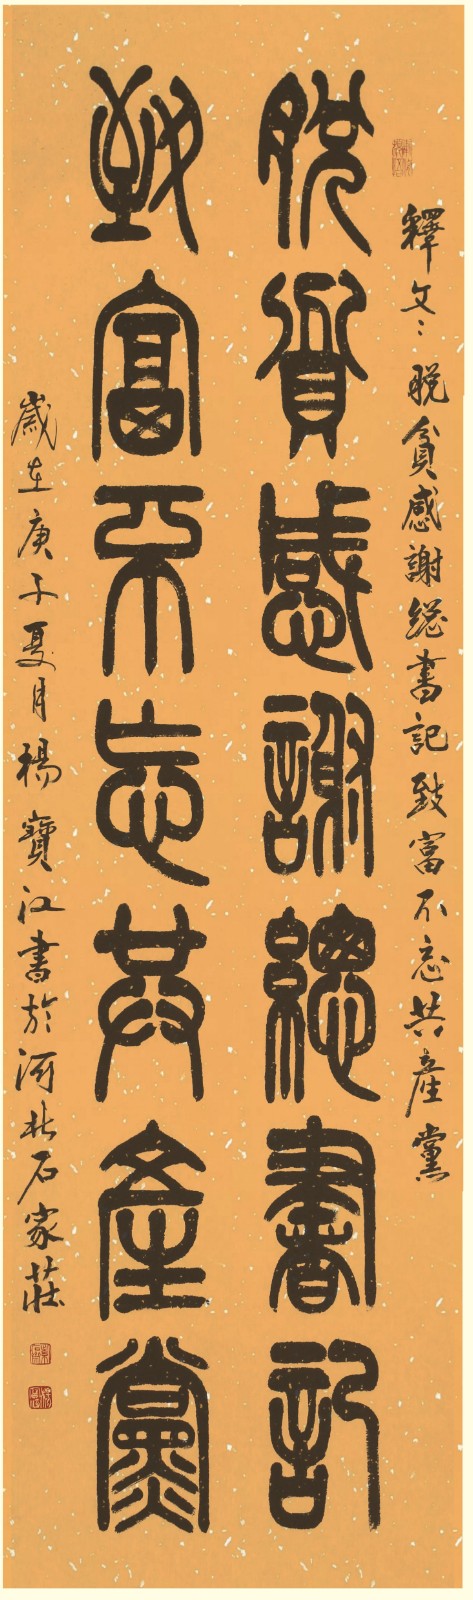 釋文：脫貧感謝總書記致富不忘共產黨
脫貧感謝總書記
致富不忘共產黨
歲在庚子夏月楊寶江書於河北石家莊